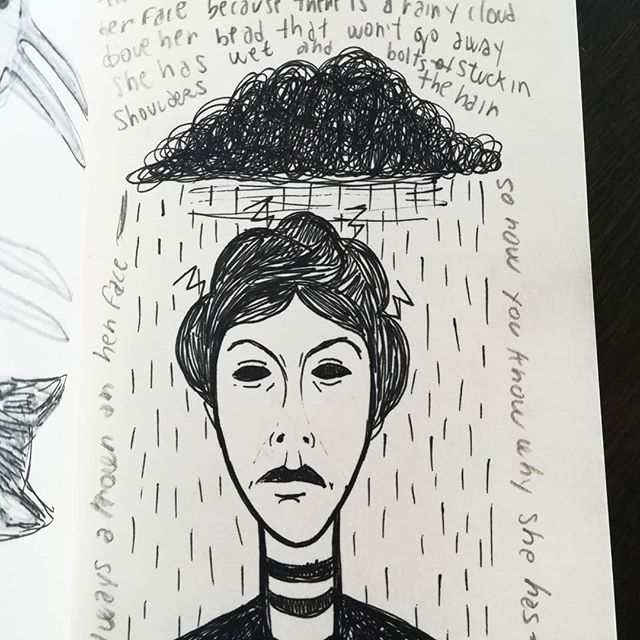 her Face because there is a rainy cloud
above her head that won't go away
She has wet and bolts of stuck in
Shoulders the hair
So now you know why she has
always a frown on her face